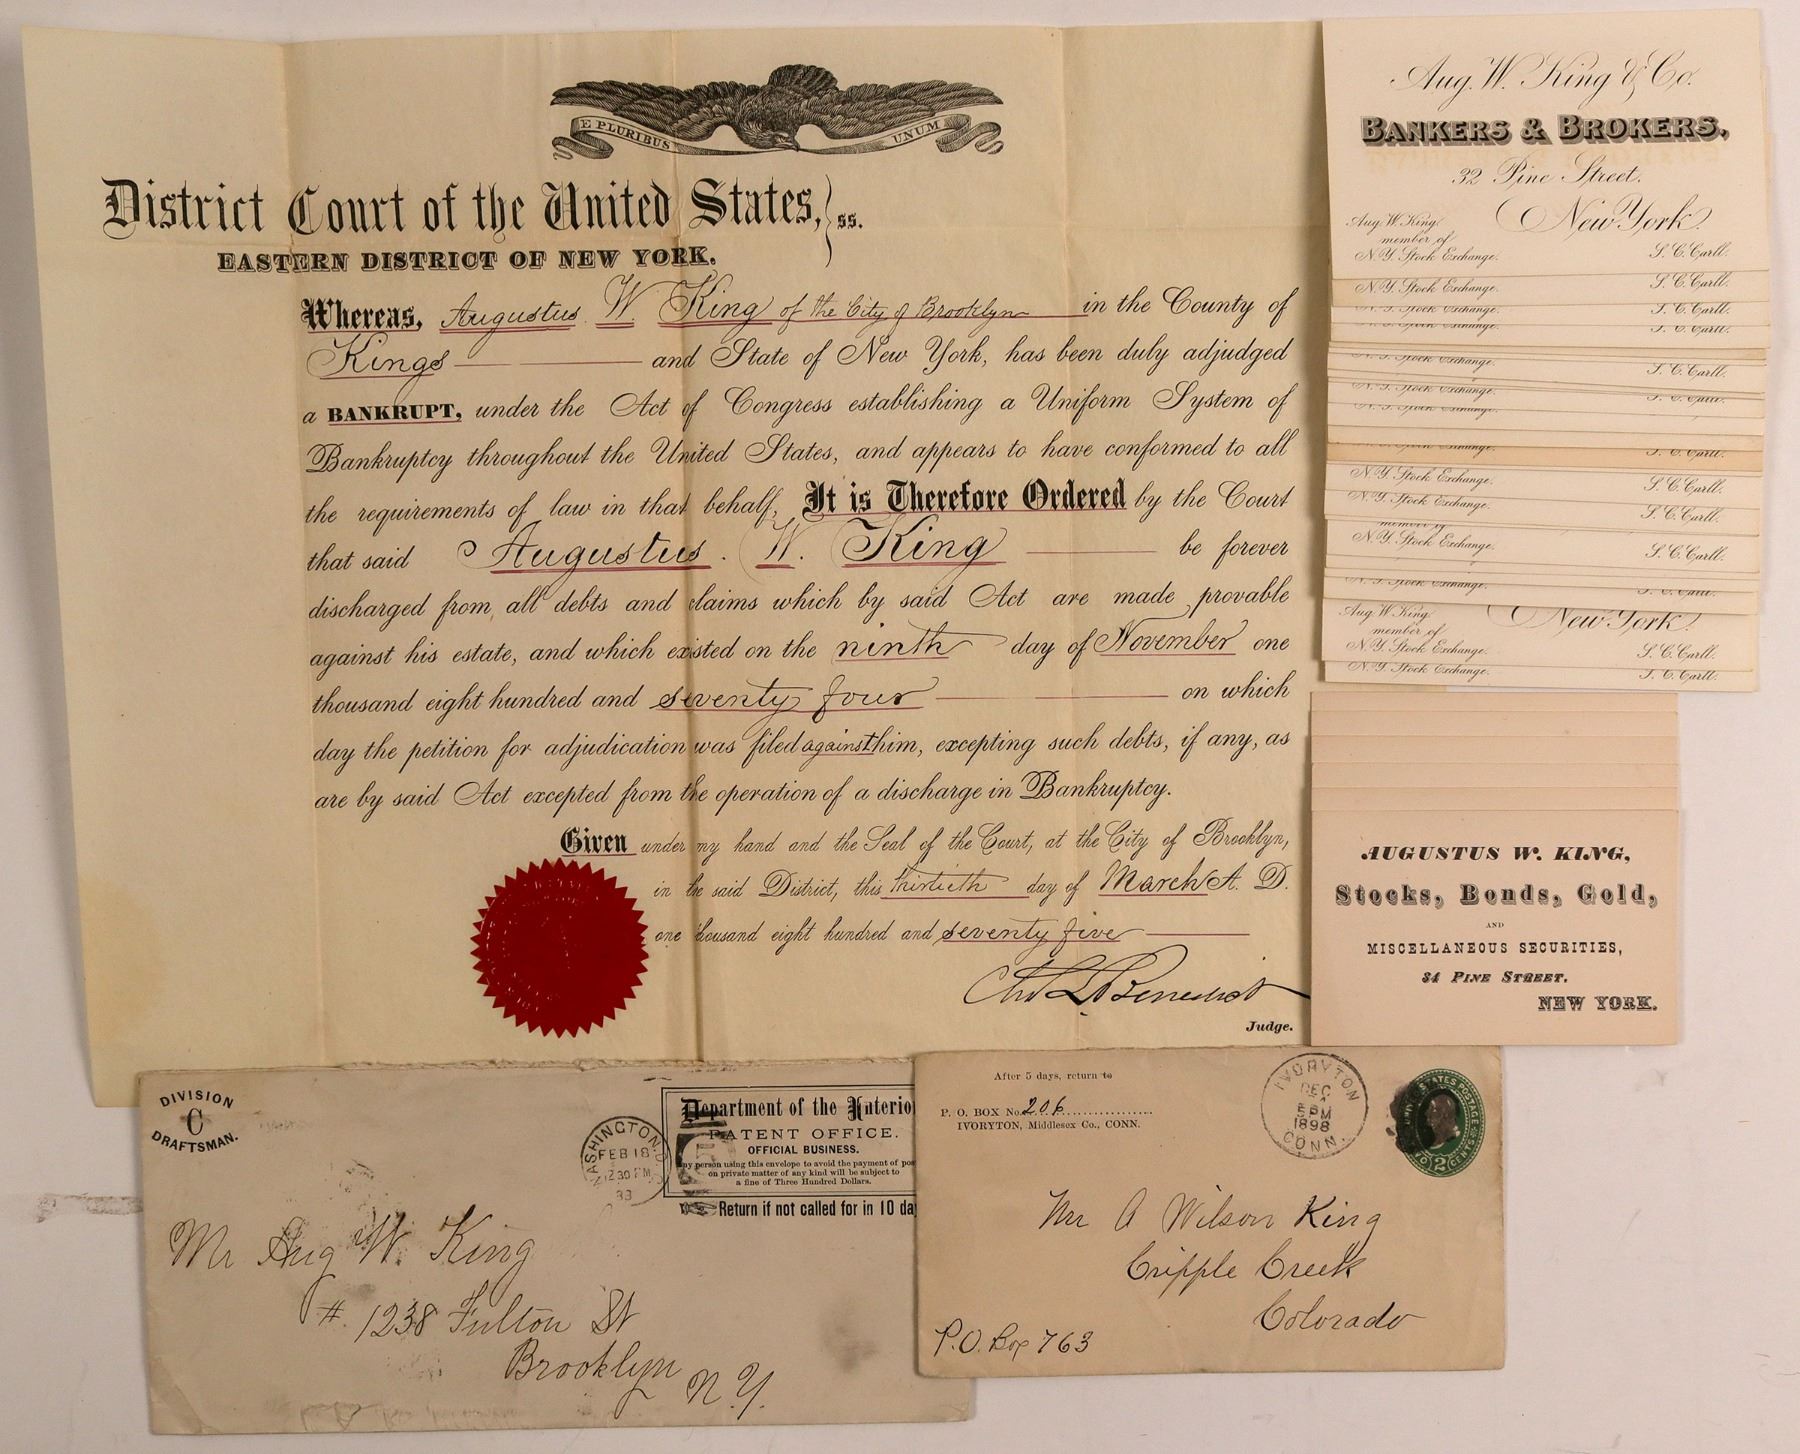 E PLURIBUS UNUM
District Court of the United States, ss.
EASTERN DISTRICT OF NEW YORK.
Whereas, Augustus W. King of the City of Brooklyn in the County of
Kings and State of New York, has been duly adjudged
a BANKRUPT, under the Act of Congress establishing a Uniform System of
Bankruptcy throughout the United States, and appears to have conformed to all
the requirements of law in that behalf, It is Therefore Ordered by the Court
that said Augustus. W. King be forever
discharged from all debts and claims which by said Act are made provable
against his estate, and which existed on the ninth day of November one
thousand eight hundred and seventy four on which
day the petition for adjudication was filed against him, excepting such debts, if any, as
are by said Act excepted from the operation of a discharge in Bankruptcy.
Given under my hand and the Seal of the Court, at the City of Brooklyn,
in the said District, this thirtieth day of March A. D.
one thousand eight hundred and seventy five
Chs L Benedict
Judge.
Aug. W. King & Co.
BANKERS & BROKERS,
32 Pine Street.
New York
Aug. W. King.
member of
N.Y. Stock Exchange.
S. C. Carll.
N.Y. Stock Exchange. S. C. Carll.
N.Y. Stock Exchange. S. C. Carll.
N.Y. Stock Exchange. S. C. Carll.
N.Y. Stock Exchange. S. C. Carll.
N.Y. Stock Exchange. S. C. Carll.
N.Y. Stock Exchange.
N.Y. Stock Exchange. S. C. Carll.
N.Y. Stock Exchange. S. C. Carll.
N.Y. Stock Exchange. S. C. Carll.
member of
N.Y. Stock Exchange. S. C. Carll.
N.Y. Stock Exchange. S. C. Carll.
Aug. W. King. New York.
member of
N.Y. Stock Exchange. S. C. Carll.
N.Y. Stock Exchange. S. C. Carll.
AUGUSTUS W. KING,
Stocks, Bonds, Gold,
AND
MISCELLANEOUS SECURITIES,
34 PINE STREET.
NEW YORK.
DIVISION
C
DRAFTSMAN.
WASHINGTON, D.
FEB 18
12 30 PM
Department of the Interio
PATENT OFFICE.
OFFICIAL BUSINESS.
ny person using this envelope to avoid the payment of pos
on private matter of any kind will be subject to
a fine of Three Hundred Dollars.
Return if not called for in 10 da
Mr Aug W. King
# 1238 Fulton St
Brooklyn
N. Y.
After 5 days, return to
P. O. BOX No. 206
IVORYTON, Middlesex Co., CONN.
IVORYTON
DEC
5 PM
1898
CONN.
UNITED STATES POSTAGE
TWO 2 CENTS
Mr A Wilson King
Cripple Creek
Colorado
P.O. Box 763